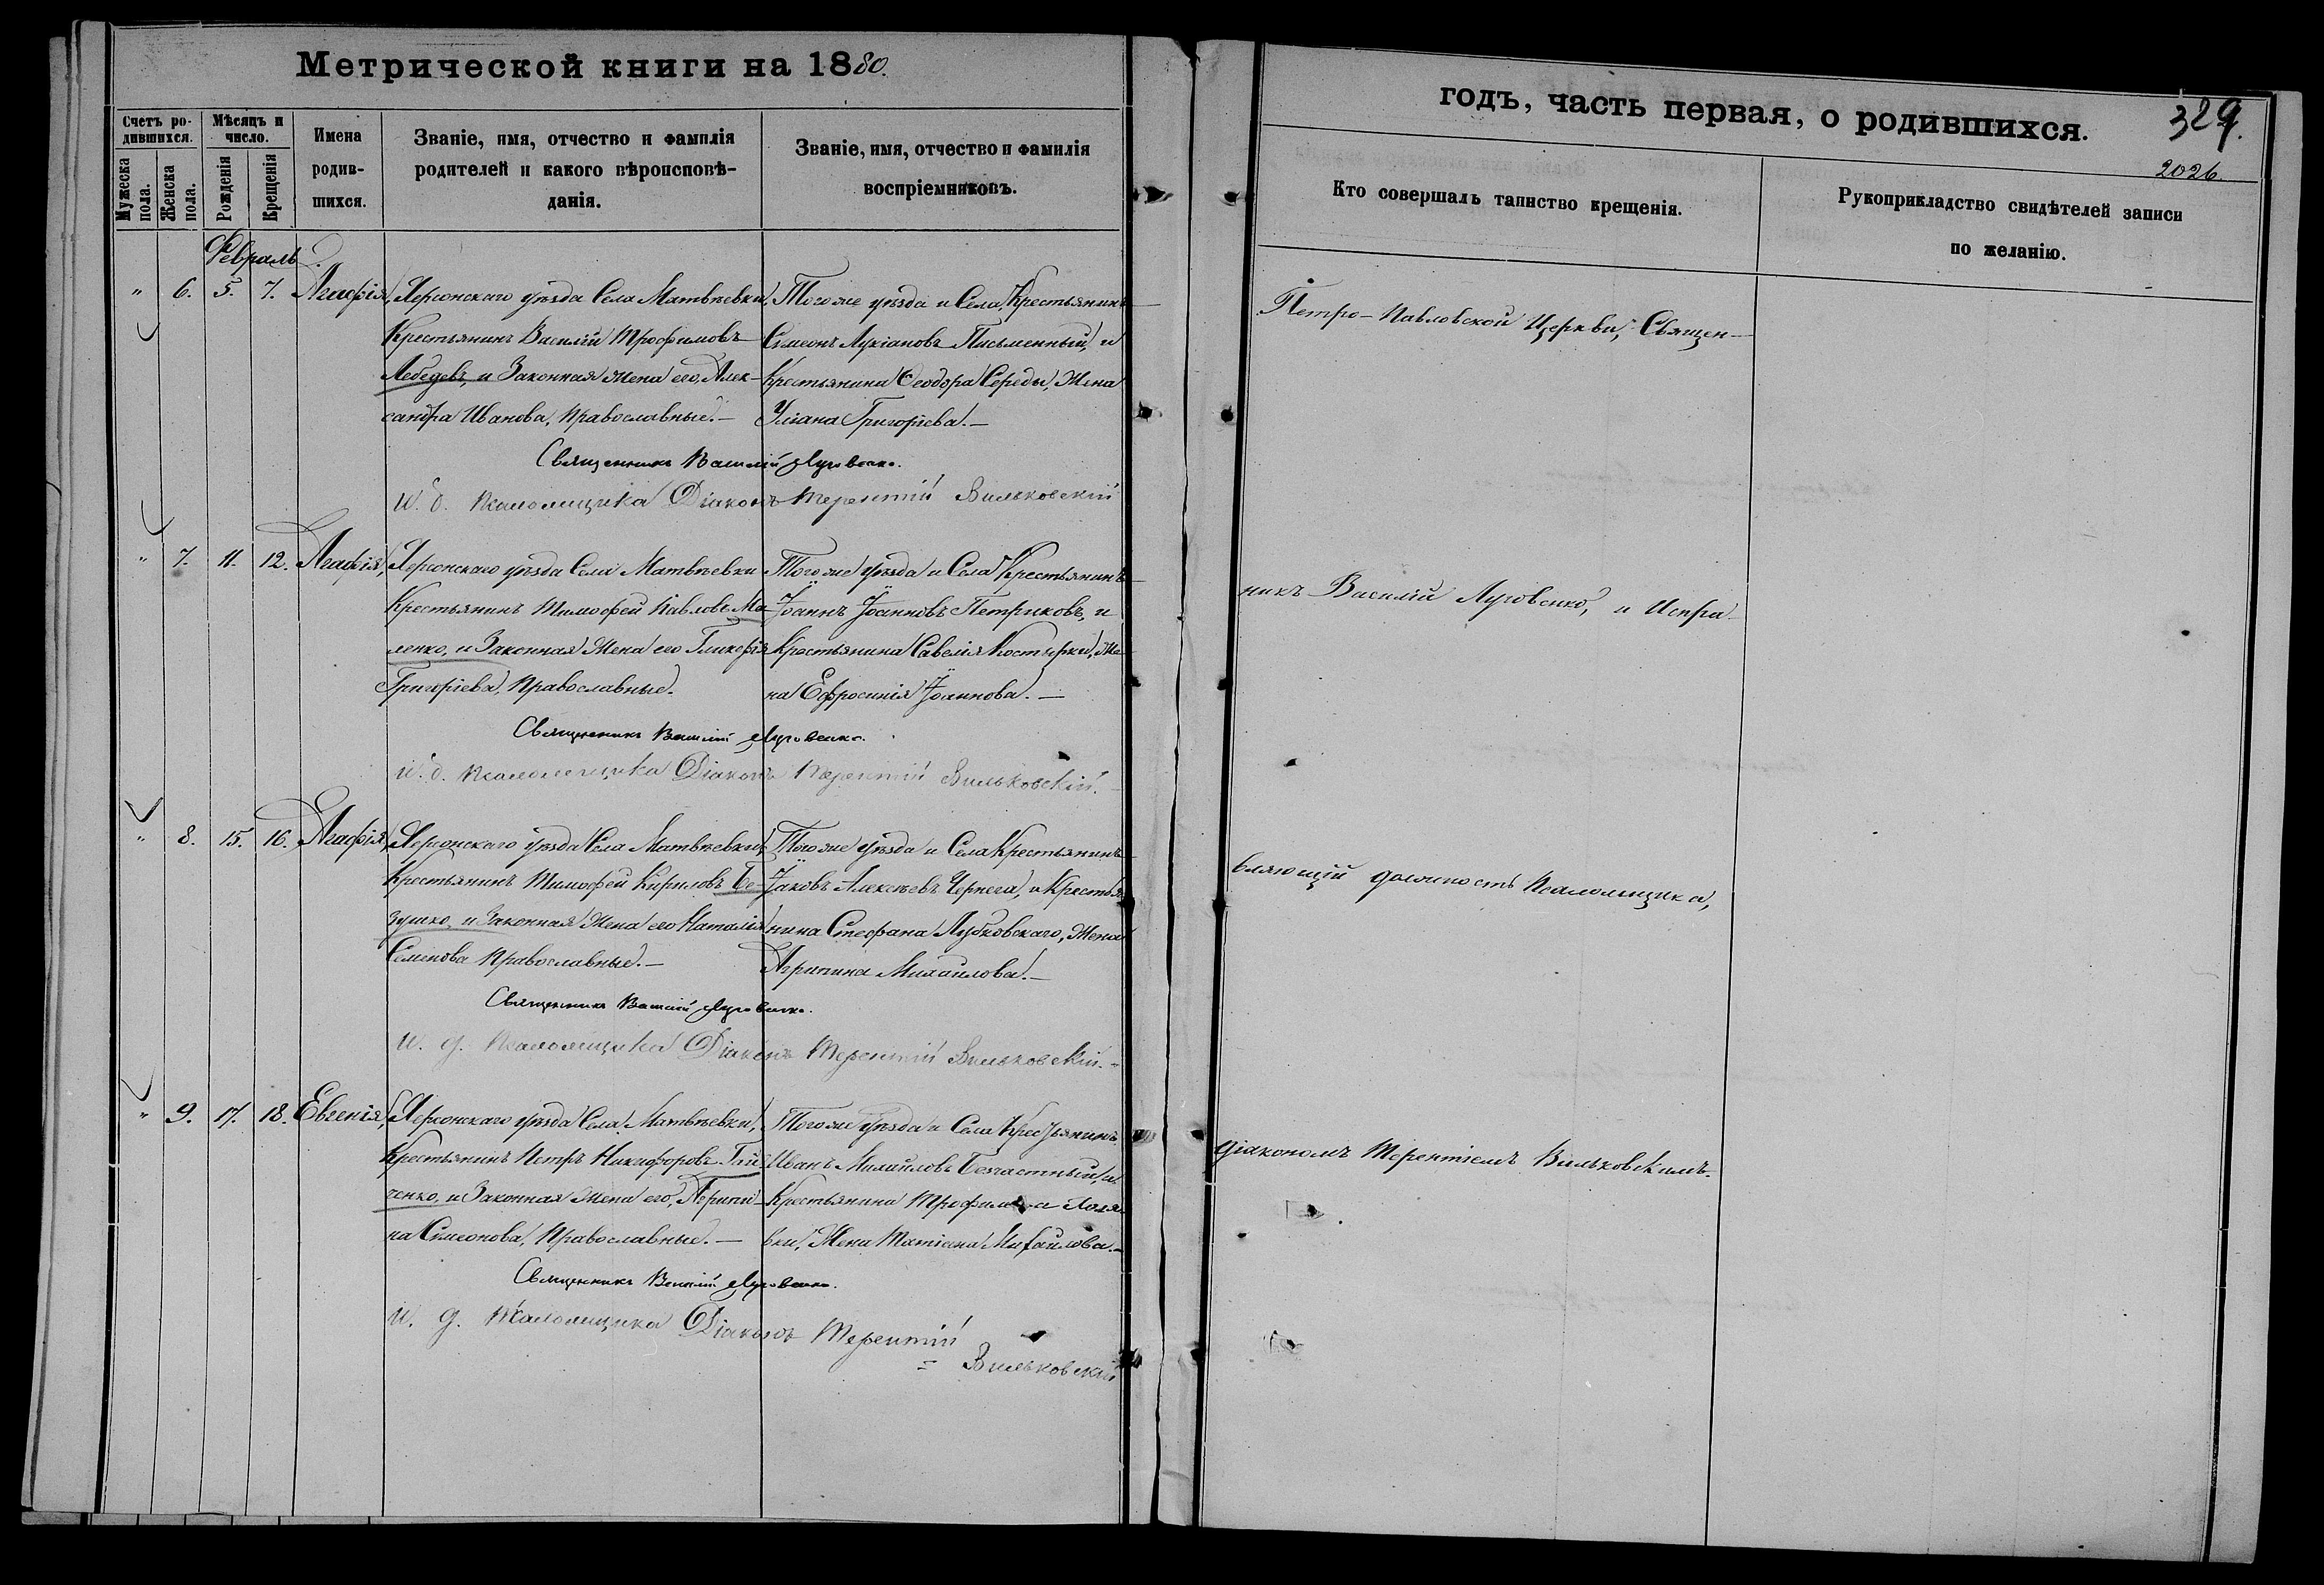 Метрической книги на 1880.
Счетъ родившихся.
Мужеска пола.
Женска пола.
Мѣсяцъ и число.
Рожденія
Крещенія
Имена родившихся.
Званіе, имя, отчество и фамилія
родителей и какого вѣроисповѣ-
данія.
Званіе, имя, отчество и фамилія
воспріемниковъ.
Февраль.
" 6. 5. 7. Агафія,
Херсонскаго уѣзда Села Матвѣевки,
Крестьянинъ Василій Трофимовъ
Лебедевъ, и Законная жена его, Алек-
сандра Иванова, Православные. —
Того же уѣзда и Села, Крестьянинъ
Симеонъ Лукіановъ Письменный, и
Крестьянина Ѳеодора Середы, Жена
Уліана Григоріева. —
Священникъ Василій Луговенко.
И. д. Псаломщика Діаконъ Терентій Вильковскій
" 7. 11. 12. Агафія,
Херсонскаго уѣзда Села Матвѣевки
Крестьянинъ Тимофей Павловъ Ма-
ленко, и Законная Жена его Гликерія
Григоріева, Православные.
Того же уѣзда и Села Крестьянинъ
Іоаннъ Іоанновъ Петриковъ, и
Крестьянина Савелія Костырки, Же-
на Ефросинія Іоаннова. —
Священникъ Василій Луговенко.
И. д. Псаломщика Діаконъ Терентій Вильковскій.
" 8. 15. 16. Агафія,
Херсонскаго уѣзда Села Матвѣевки,
Крестьянинъ Тимофей Кириловъ Бе-
зушко, и Законная Жена его Наталія
Семенова Православные. —
Того же уѣзда и Села Крестьянинъ
Іаковъ Алексѣевъ Чернега, и Крестья
нина Стефана Лубковскаго, Жена
Агрипина Михаилова. —
Священникъ Василій Луговенко.
И. д. Псаломщика Діаконъ Терентій Вильковскій.
" 9. 17. 18. Евгенія,
Херсонскаго уѣзда Села Матвѣевки,
Крестьянинъ Петръ Никифоровъ
ченко, и Законная Жена его, Агрипи-
на Симеонова, Православные. —
Того же уѣзда и Села Крестьянинъ
Иванъ Михайловъ Безчастный, и
Крестьянина Трофима
вки, Жена Татіана Михаилова. —
Священникъ Василій Луговенко.
И. д. Псаломщика Діаконъ Терентій
Вильковскій
годъ, часть первая, о родившихся.
329.
2026.
Кто совершалъ таинство крещенія.
Рукоприкладство свидѣтелей записи
по желанію.
Петро-Павловской Церкви, Священ-
никъ Василій Луговенко, и Испра-
вляющій должность Псаломщика,
Діакономъ Терентіемъ Вильковскимъ.